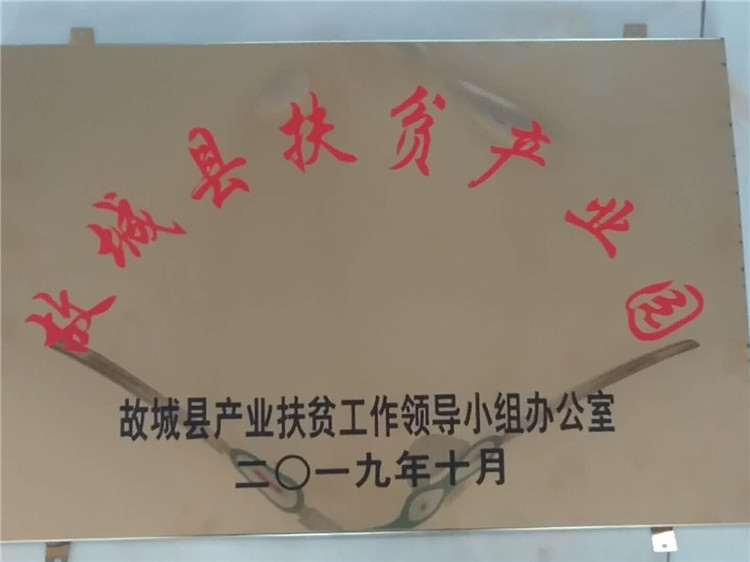 故城县扶贫产业园
故城县产业扶贫工作领导小组办公室
二〇一九年十月